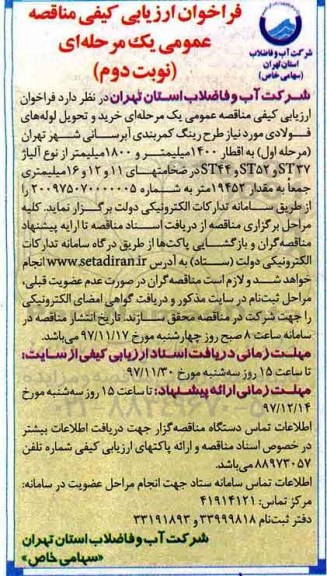 فراخوان ارزیابی کیفی مناقصه
عمومی یک مرحله‌ای
(نوبت دوم)
شرکت آب و فاضلاب
استان تهران
(سهامی خاص)
شرکت آب و فاضلاب استان تهران در نظر دارد فراخوان
ارزیابی کیفی مناقصه عمومی یک مرحله‌ای خرید و تحویل لوله‌های
فولادی مورد نیاز طرح رینگ کمربندی آبرسانی شهر تهران
(مرحله اول) به اقطار ۱۴۰۰میلیمتر و ۱۸۰۰میلیمتر از نوع آلیاژ
ST۳۷ و ST۵۲ و ST۴۴ در ضخامتهای ۱۱ و ۱۲ و ۱۶میلیمتری
جمعاً به مقدار ۱۹۴۵۲متر به شماره ۲۰۰۹۷۵۰۷۰۰۰۰۰۰۵ را
از طریق سامانه تدارکات الکترونیکی دولت برگزار نماید. کلیه
مراحل برگزاری مناقصه از دریافت اسناد مناقصه تا ارایه پیشنهاد
مناقصه‌گران و بازگشایی پاکت‌ها از طریق درگاه سامانه تدارکات
الکترونیکی دولت (ستاد) به آدرس www.setadiran.ir انجام
خواهد شد و لازم است مناقصه‌گران در صورت عدم عضویت قبلی،
مراحل ثبت‌نام در سایت مذکور و دریافت گواهی امضای الکترونیکی
را جهت شرکت در مناقصه محقق سازند. تاریخ انتشار مناقصه در
سامانه ساعت ۸ صبح روز چهارشنبه مورخ ۹۷/۱۱/۱۷ می‌باشد.
مهلت زمانی دریافت اسناد ارزیابی کیفی از سایت:
تا ساعت ۱۵ روز سه‌شنبه مورخ ۹۷/۱۱/۳۰
مهلت زمانی ارائه پیشنهاد: تا ساعت ۱۵ روز سه‌شنبه مورخ
۹۷/۱۲/۱۴
اطلاعات تماس دستگاه مناقصه‌گزار جهت دریافت اطلاعات بیشتر
در خصوص اسناد مناقصه و ارائه پاکتهای ارزیابی کیفی شماره تلفن
۸۸۹۷۳۰۵۷ می‌باشد.
اطلاعات تماس سامانه ستاد جهت انجام مراحل عضویت در سامانه:
مرکز تماس: ۴۱۹۱۴۱۲۱
دفتر ثبت‌نام ۳۳۹۹۹۸۱۸ و ۳۳۱۹۱۸۹۳
شرکت آب و فاضلاب استان تهران
«سهامی خاص»